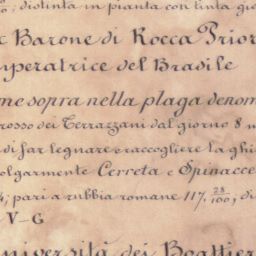 %; distinta in pianta con tinta gia
Barone di Rocca Prior
mperatrice del Brasile
me sopra nella plaga denom
rosso dei Terrazzani dal giorno 8 m
di far legnare e raccogliere la ghi
olgarmente Cerreta e Spinacce
; pari a rubbia romane 117. 28/100, di
V-G
niversità dei Boattier